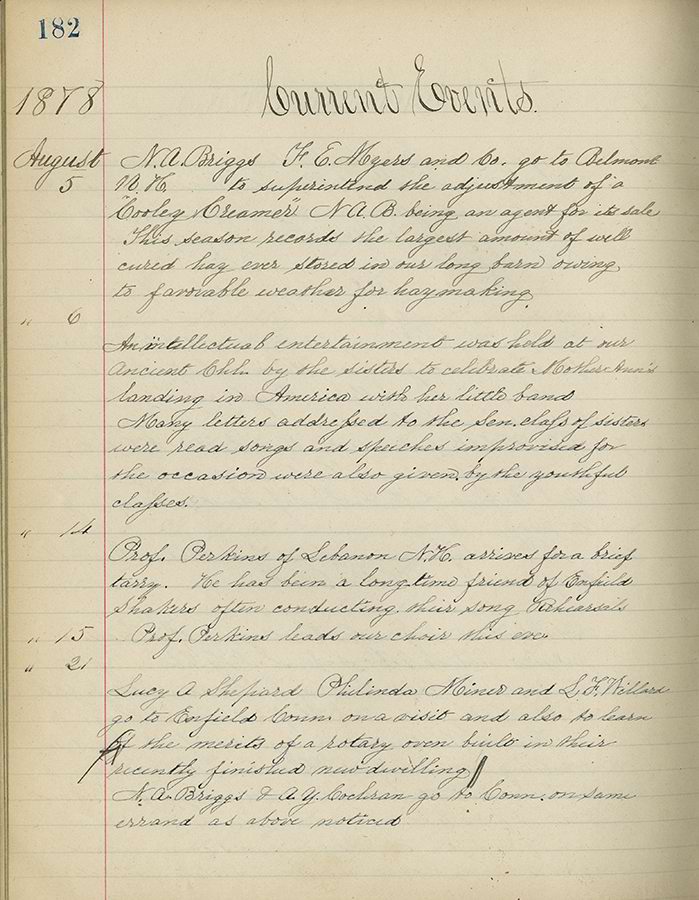 182
1878 Current Events.
August N. A. Briggs F. E. Myers and Co. go to Belmont
5 N. H. to superintend the adjustment of a
"Cooley Creamer" N A B. being an agent for its sale
This season records the largest amount of well
cured hay ever stored in our long barn owing
to favorable weather for haymaking
" 6
An intellectual entertainment was held at our
Ancient Chh. by the sisters to celebrate Mother Ann's
landing in America with her little band
Many letters addressed to the Sen. class of sisters
were read songs and speeches improvised for
the occasion were also given by the youthful
classes.
" 14
Prof. Perkins of Lebanon N.H. arrives for a brief
tarry. He has been a long-time friend of Enfield
Shakers often conducting their song Rehearsals
" 15 Prof. Perkins leads our choir this eve
" 21
Lucy A Shepard Philinda Miner and L. F. Willard
go to Enfield Conn. on a visit and also to learn
of the merits of a rotary oven built in their
recently finished new dwelling
N. A. Briggs & A. Y. Cochran go to Conn. on same
errand as above noticed